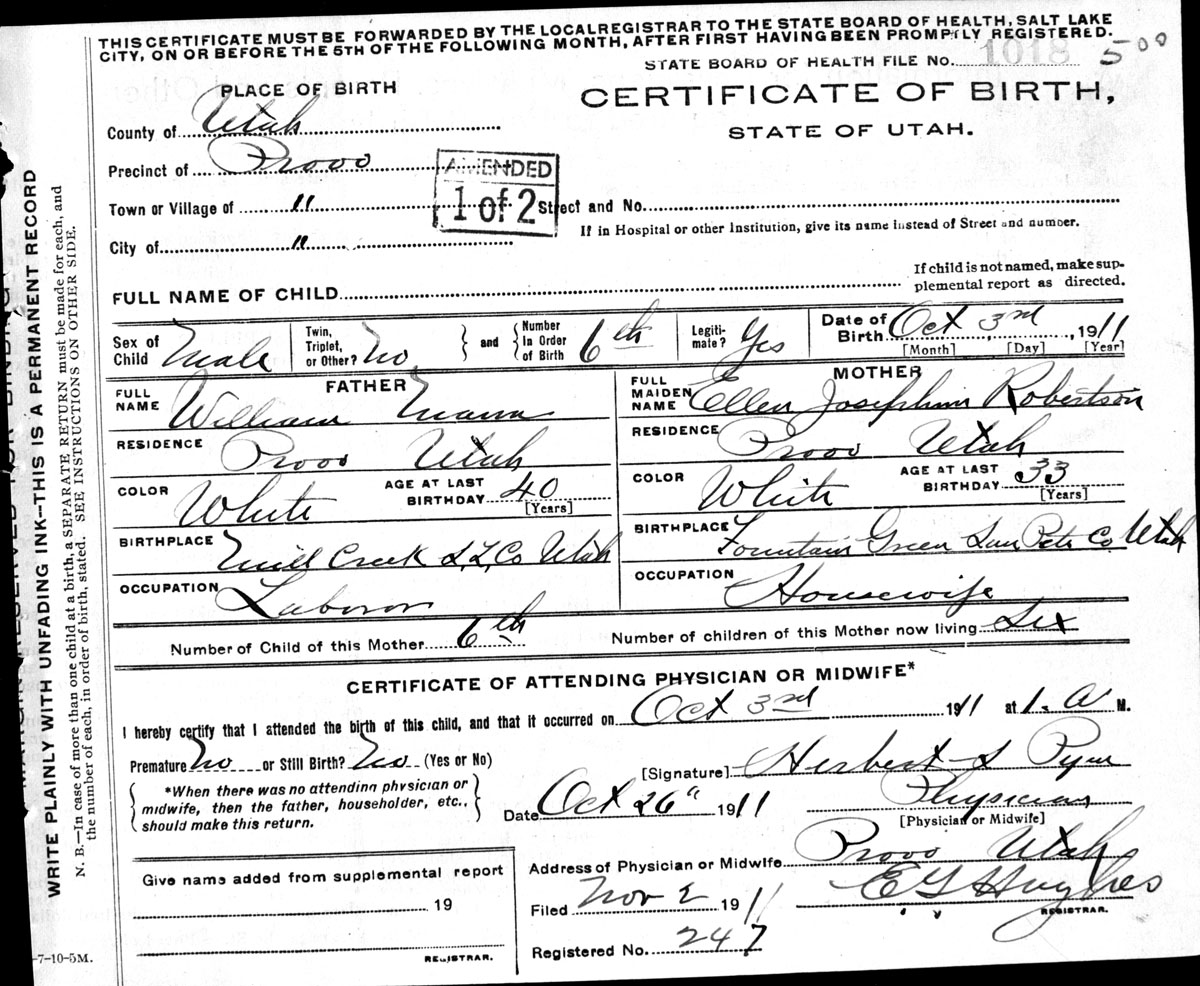 THIS CERTIFICATE MUST BE FORWARDED BY THE LOCAL REGISTRAR TO THE STATE BOARD OF HEALTH, SALT LAKE
CITY, ON OR BEFORE THE 5TH OF THE FOLLOWING MONTH, AFTER FIRST HAVING BEEN PROMPTLY REGISTERED.
STATE BOARD OF HEALTH FILE No. 1018 500
PLACE OF BIRTH
CERTIFICATE OF BIRTH,
STATE OF UTAH.
County of Utah
Precinct of Provo
AMENDED
1 of 2
Town or Village of "
Street and No.
City of "
If in Hospital or other Institution, give its name instead of Street and number.
FULL NAME OF CHILD
If child is not named, make sup-
plemental report as directed.
Sex of Child Male
Twin, Triplet, or Other? No
and
Number In Order of Birth 6th
Legiti- mate? Yes
Date of Birth Oct 3rd, 1911
[Month] [Day] [Year]
FATHER
FULL NAME William Mann
RESIDENCE Provo Utah
COLOR White AGE AT LAST BIRTHDAY 40
[Years]
BIRTHPLACE Mill Creek S.L. Co Utah
OCCUPATION Laboror
MOTHER
FULL MAIDEN NAME Ellen Josephine Robertson
RESIDENCE Provo Utah
COLOR White AGE AT LAST BIRTHDAY 33
[Years]
BIRTHPLACE Fountain Green San Pete Co. Utah
OCCUPATION Housewife
Number of Child of this Mother 6th Number of children of this Mother now living Six
CERTIFICATE OF ATTENDING PHYSICIAN OR MIDWIFE*
I hereby certify that I attended the birth of this child, and that it occurred on Oct 3rd 1911 at 1. A M.
Premature No or Still Birth? No (Yes or No)
*When there was no attending physician or
midwife, then the father, householder, etc.,
should make this return.
[Signature] Herbert S Pyne
Date Oct 26" 1911
Physician
[Physician or Midwife]
Address of Physician or Midwife Provo Utah
Give name added from supplemental report
19
REGISTRAR.
Filed Nov 2 1911
E G Hughes
REGISTRAR.
Registered No. 247
-7-10-5M.
WRITE PLAINLY WITH UNFADING INK—THIS IS A PERMANENT RECORD
N. B.—In case of more than one child at a birth, a SEPARATE RETURN must be made for each, and
the number of each, in order of birth, stated. SEE INSTRUCTIONS ON OTHER SIDE.